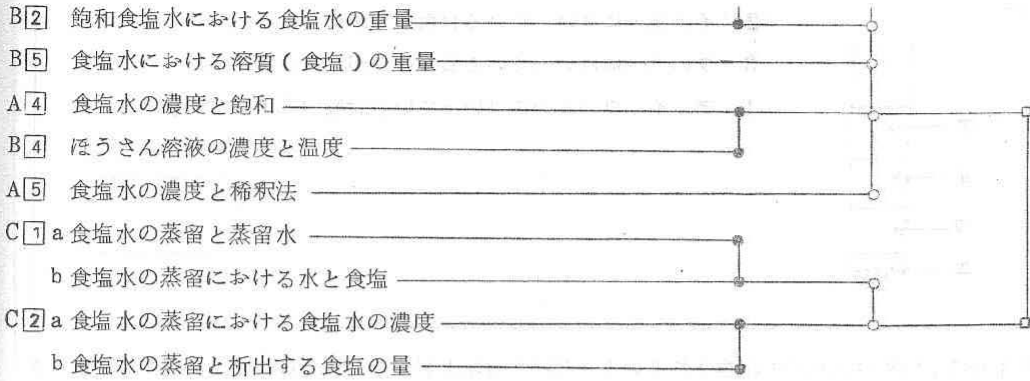 B2 飽和食塩水における食塩水の重量
B5 食塩水における溶質(食塩)の重量
A4 食塩水の濃度と飽和
B4 ほうさん溶液の濃度と温度
A5 食塩水の濃度と稀釈法
C1 a 食塩水の蒸留と蒸留水
b 食塩水の蒸留における水と食塩
C2 a 食塩水の蒸留における食塩水の濃度
b 食塩水の蒸留と析出する食塩の量